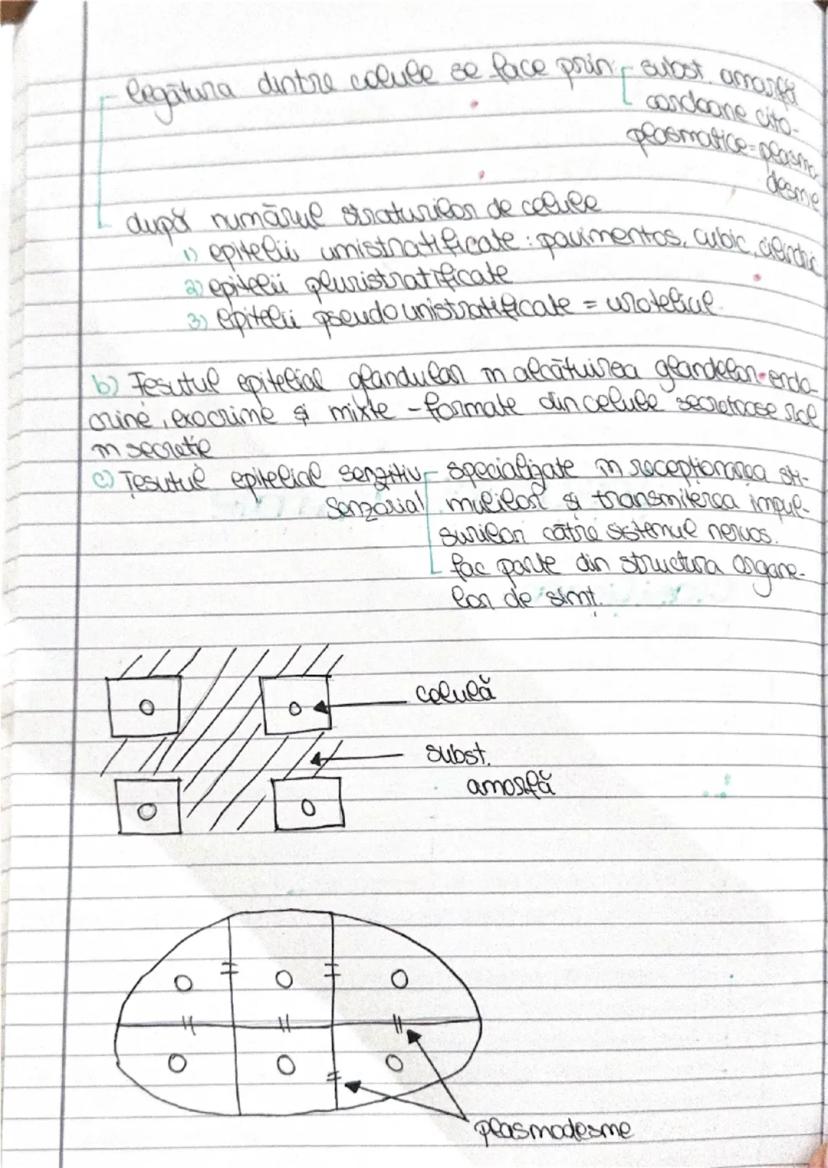 legătura dintre celule se face prin subst. amorfă
cordoane cito-
plasmatice = plasmo
desme
după numărul straturilor de celule
1) epitelii unistratificate : pavimentos, cubic, cilindric
2) epitelii pluristratificate
3) epitelii pseudounistratificate = uroteliul
b) Țesutul epitelial glandular în alcătuirea glandelor endo-
crine, exocrine și mixte - formate din celule secretoase
în secreție
c) Țesutul epitelial senzitiv specializate în recepționarea sti-
senzorial mulilor și transmiterea impul-
surilor către sistemul nervos.
fac parte din structura organe-
lor de simț.
celulă
subst.
amorfă
plasmodesme